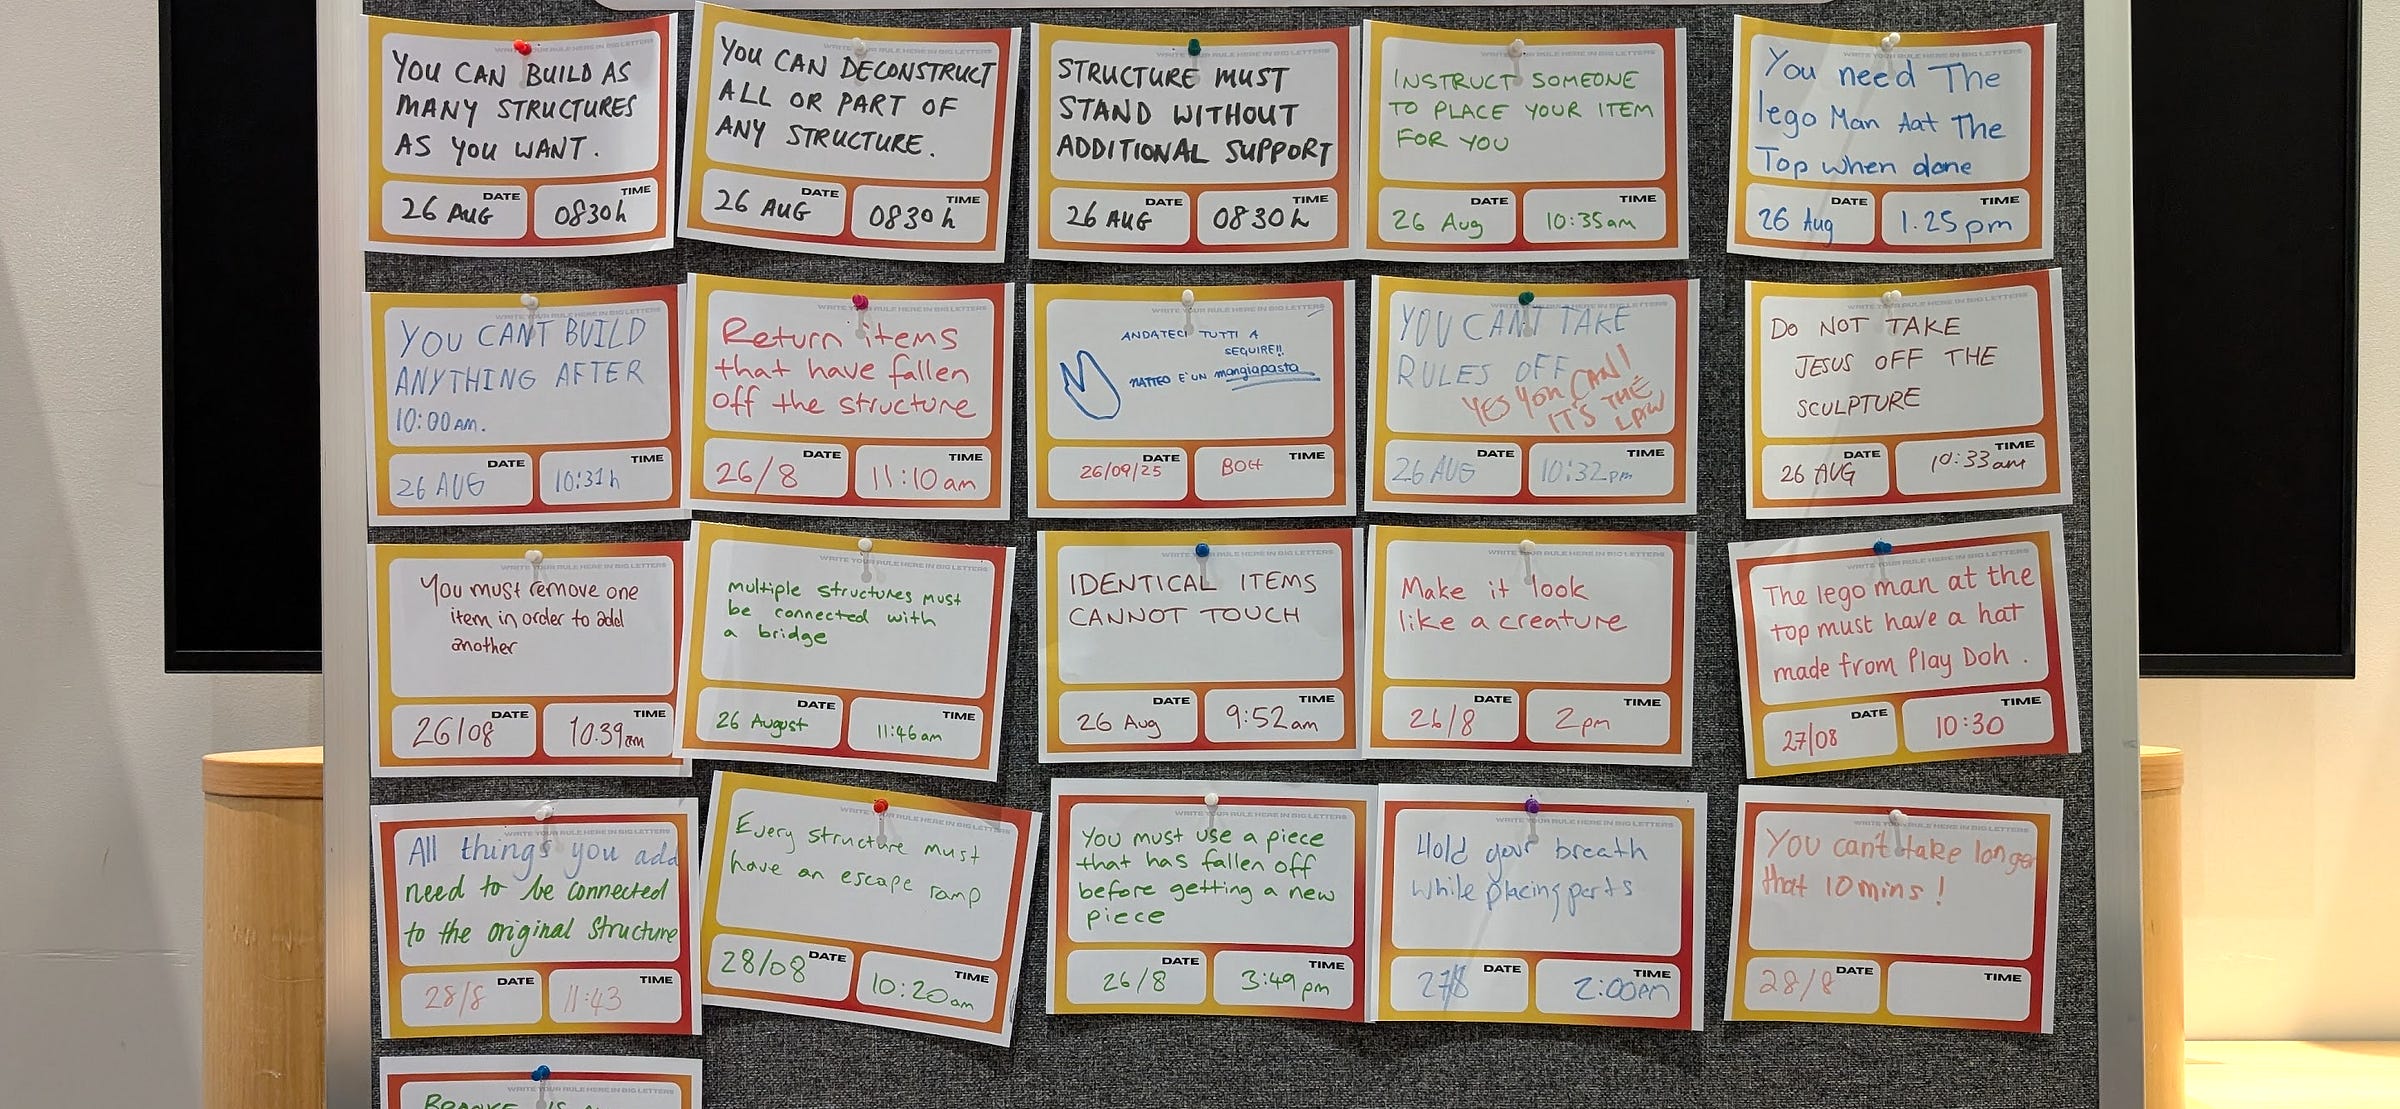 WRITE YOUR RULE HERE IN BIG LETTERS
YOU CAN BUILD AS
MANY STRUCTURES
AS YOU WANT.
DATE
26 AUG
TIME
0830h
WRITE YOUR RULE HERE IN BIG LETTERS
YOU CAN DECONSTRUCT
ALL OR PART OF
ANY STRUCTURE.
DATE
26 AUG
TIME
0830h
WRITE YOUR RULE HERE IN BIG LETTERS
STRUCTURE MUST
STAND WITHOUT
ADDITIONAL SUPPORT
DATE
26 AUG
TIME
0830h
WRITE YOUR RULE HERE IN BIG LETTERS
INSTRUCT SOMEONE
TO PLACE YOUR ITEM
FOR YOU
DATE
26 Aug
TIME
10:35am
WRITE YOUR RULE HERE IN BIG LETTERS
You need The
lego Man Aat The
Top when done
DATE
26 Aug
TIME
1.25pm
WRITE YOUR RULE HERE IN BIG LETTERS
YOU CANT BUILD
ANYTHING AFTER
10:00AM.
DATE
26 AUG
TIME
10:31h
WRITE YOUR RULE HERE IN BIG LETTERS
Return items
that have fallen
off the structure
DATE
26/8
TIME
11:10am
WRITE YOUR RULE HERE IN BIG LETTERS
ANDATECI TUTTI A
SEQUIRE!!
MATTEO E'UN mangiapasta
DATE
26/09/25
TIME
BOH
WRITE YOUR RULE HERE IN BIG LETTERS
YOU CANT TAKE
RULES OFF
YES YOU CAN!
IT'S THE
LAW
DATE
26 AUG
TIME
10:32pm
WRITE YOUR RULE HERE IN BIG LETTERS
DO NOT TAKE
JESUS OFF THE
SCULPTURE
DATE
26 AUG
TIME
10:33am
WRITE YOUR RULE HERE IN BIG LETTERS
You must remove one
item in order to add
another
DATE
26/08
TIME
10:39am
WRITE YOUR RULE HERE IN BIG LETTERS
multiple structures must
be connected with
a bridge
DATE
26 August
TIME
11:46am
WRITE YOUR RULE HERE IN BIG LETTERS
IDENTICAL ITEMS
CANNOT TOUCH
DATE
26 Aug
TIME
9:52am
WRITE YOUR RULE HERE IN BIG LETTERS
Make it look
like a creature
DATE
26/8
TIME
2pm
WRITE YOUR RULE HERE IN BIG LETTERS
The lego man at the
top must have a hat
made from Play Doh.
DATE
27/08
TIME
10:30
WRITE YOUR RULE HERE IN BIG LETTERS
All things you add
need to be connected
to the original Structure
DATE
28/8
TIME
11:43
WRITE YOUR RULE HERE IN BIG LETTERS
Every structure must
have an escape ramp
DATE
28/08
TIME
10:20am
WRITE YOUR RULE HERE IN BIG LETTERS
You must use a piece
that has fallen off
before getting a new
piece
DATE
26/8
TIME
3:49pm
WRITE YOUR RULE HERE IN BIG LETTERS
Hold your breath
while placing parts
DATE
27/8
TIME
2:00pm
WRITE YOUR RULE HERE IN BIG LETTERS
You can't take longer
that 10 mins!
DATE
28/8
TIME
WRITE YOUR RULE HERE IN BIG LETTERS